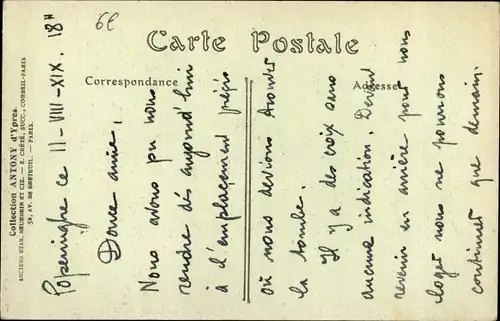 6E
Carte Postale
Correspondance
Adresse
Collection ANTONY d'Ypres.
ANCIENS ETAB. NEURDEIN ET CIE. — E. CRÉTÉ, SUCC., CORBEIL-PARIS
52, AV. DE BRETEUIL. — PARIS.
Poperinghe ce 11-VIII-XIX. 18H
Douce amie,
Nous avons pu nous
rendre dès aujourd'hui
à l'emplacement précis
où nous devions trouver
la tombe.
Il y a des croix sans
aucune indication. Devant
revenir en arrière pour nous
loger nous ne pourrons
continuer que demain.